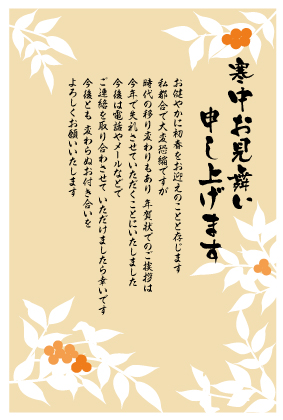 寒中お見舞い
申し上げます
お健やかに初春をお迎えのことと存じます
私都合で大変恐縮ですが
時代の移り変わりもあり 年賀状でのご挨拶は
今年で失礼させていただくことにいたしました
今後は電話やメールなどで
ご連絡を取り合わさせて いただけましたら幸いです
今後とも 変わらぬお付き合いを
よろしくお願いいたします